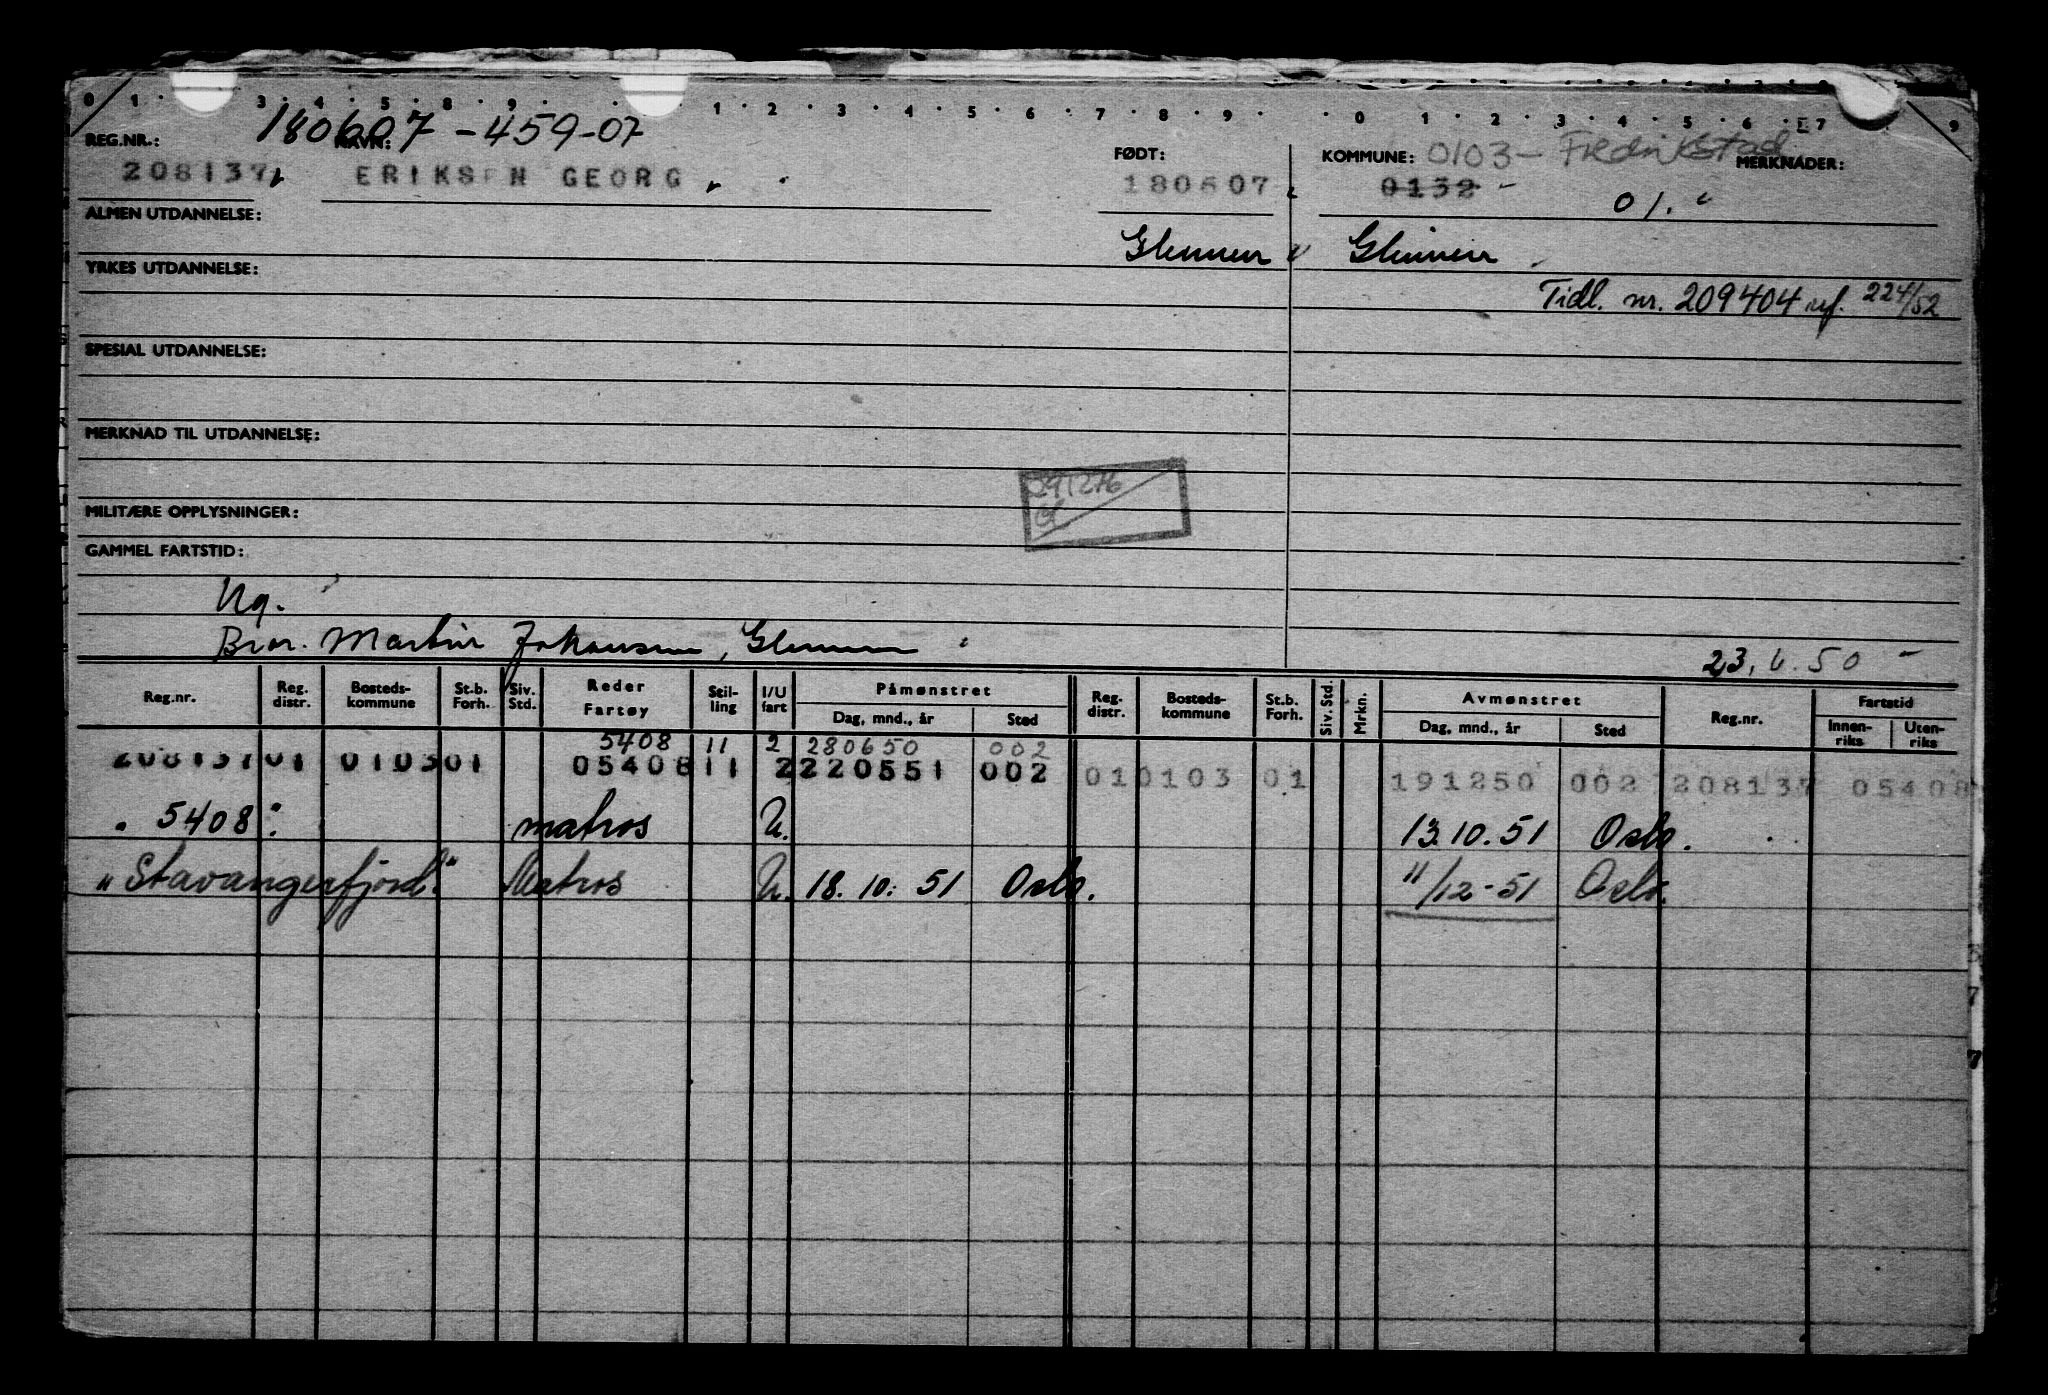 0 1 3 4 5 8 9 1 2 3 4 5 6 7 8 9 0 1 2 3 4 5 6 7 9
180607-459-07
REG.NR.: NAVN: FØDT: KOMMUNE: 0103- Fredrikstad MERKNADER:
208137 ERIKSEN GEORG 180607 0132
01.
ALMEN UTDANNELSE:
Glemmen Glemmen
YRKES UTDANNELSE:
Tidl. nr. 209404 224/52
SPESIAL UTDANNELSE:
MERKNAD TIL UTDANNELSE:
291276
MILITÆRE OPPLYSNINGER:
GAMMEL FARTSTID:
Ug.
Bror. Martin Johansen, Glemmen
23.6.50
Reg.nr. Reg. distr. Bosteds-kommune St.b. Forh. Siv. Std. Reder Fartøy Stil-ling I/U fart Påmønstret Dag, mnd., år Sted Reg. distr. Bosteds-kommune St.b. Forh. Siv. Std. Mrkn. Avmønstret Dag, mnd., år Sted Reg.nr. Fartstid Innen-riks Uten-riks
5408 11 2 280650 002
208137 01 0103 01 05408 11 2 220551 002 01 0103 01 191250 002 208137 05408
" 5408 " matros U. 13.10.51 Oslo.
"Stavangerfjord" Matros U. 18.10.51 Oslo. "/12-51 Oslo.